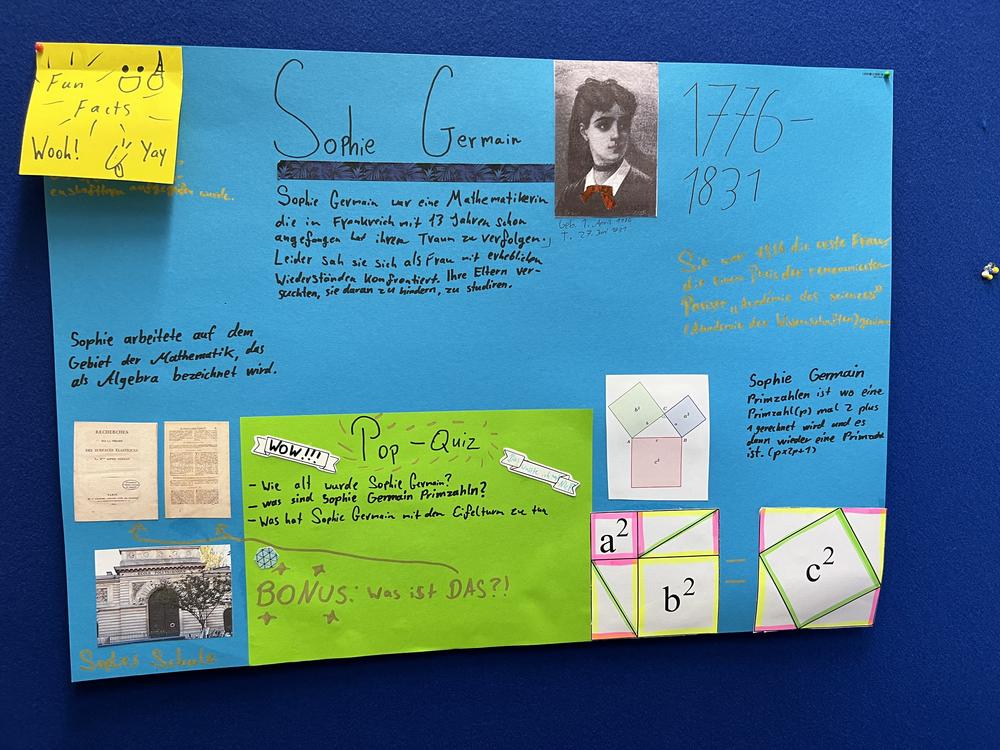 Fun
Facts
Wooh! Yay
enschaftlern aufgegriffen wurde.
Sophie Germain
1776-
1831
Sophie Germain war eine Mathematikerin
die in Frankreich mit 13 Jahren schon
angefangen hat ihren Traum zu verfolgen.
Leider sah sie sich als Frau mit erheblichen
Wiederständen konfrontiert. Ihre Eltern ver-
suchten, sie daran zu hindern, zu studieren.
Geb. 1. April 1776
T. 27. Juni 1831
Sie war 1816 die erste Frau,
die einen Preis der renommierten
Pariser "Académie des sciences"
(Akademie der Wissenschaften) gewann
Sophie arbeitete auf dem
Gebiet der Mathematik, das
als Algebra bezeichnet wird.
RECHERCHES
SUR LA THÉORIE
DES SURFACES ÉLASTIQUES
PARIS
WOW!!!
Pop-Quiz
- Wie alt wurde Sophie Germain?
- was sind Sophie Germain Primzahln?
- Was hat Sophie Germain mit dem Eifelturm zu tun
BONUS: Was ist DAS?!
b²
a²
C
A
B
c²
Sophie Germain
Primzahlen ist wo eine
Primzahl(p) mal 2 plus
1 gerechnet wird und es
dann wieder eine Primzahl
ist. (px2p+1)
a²
b²
=
c²
Sophies Schule